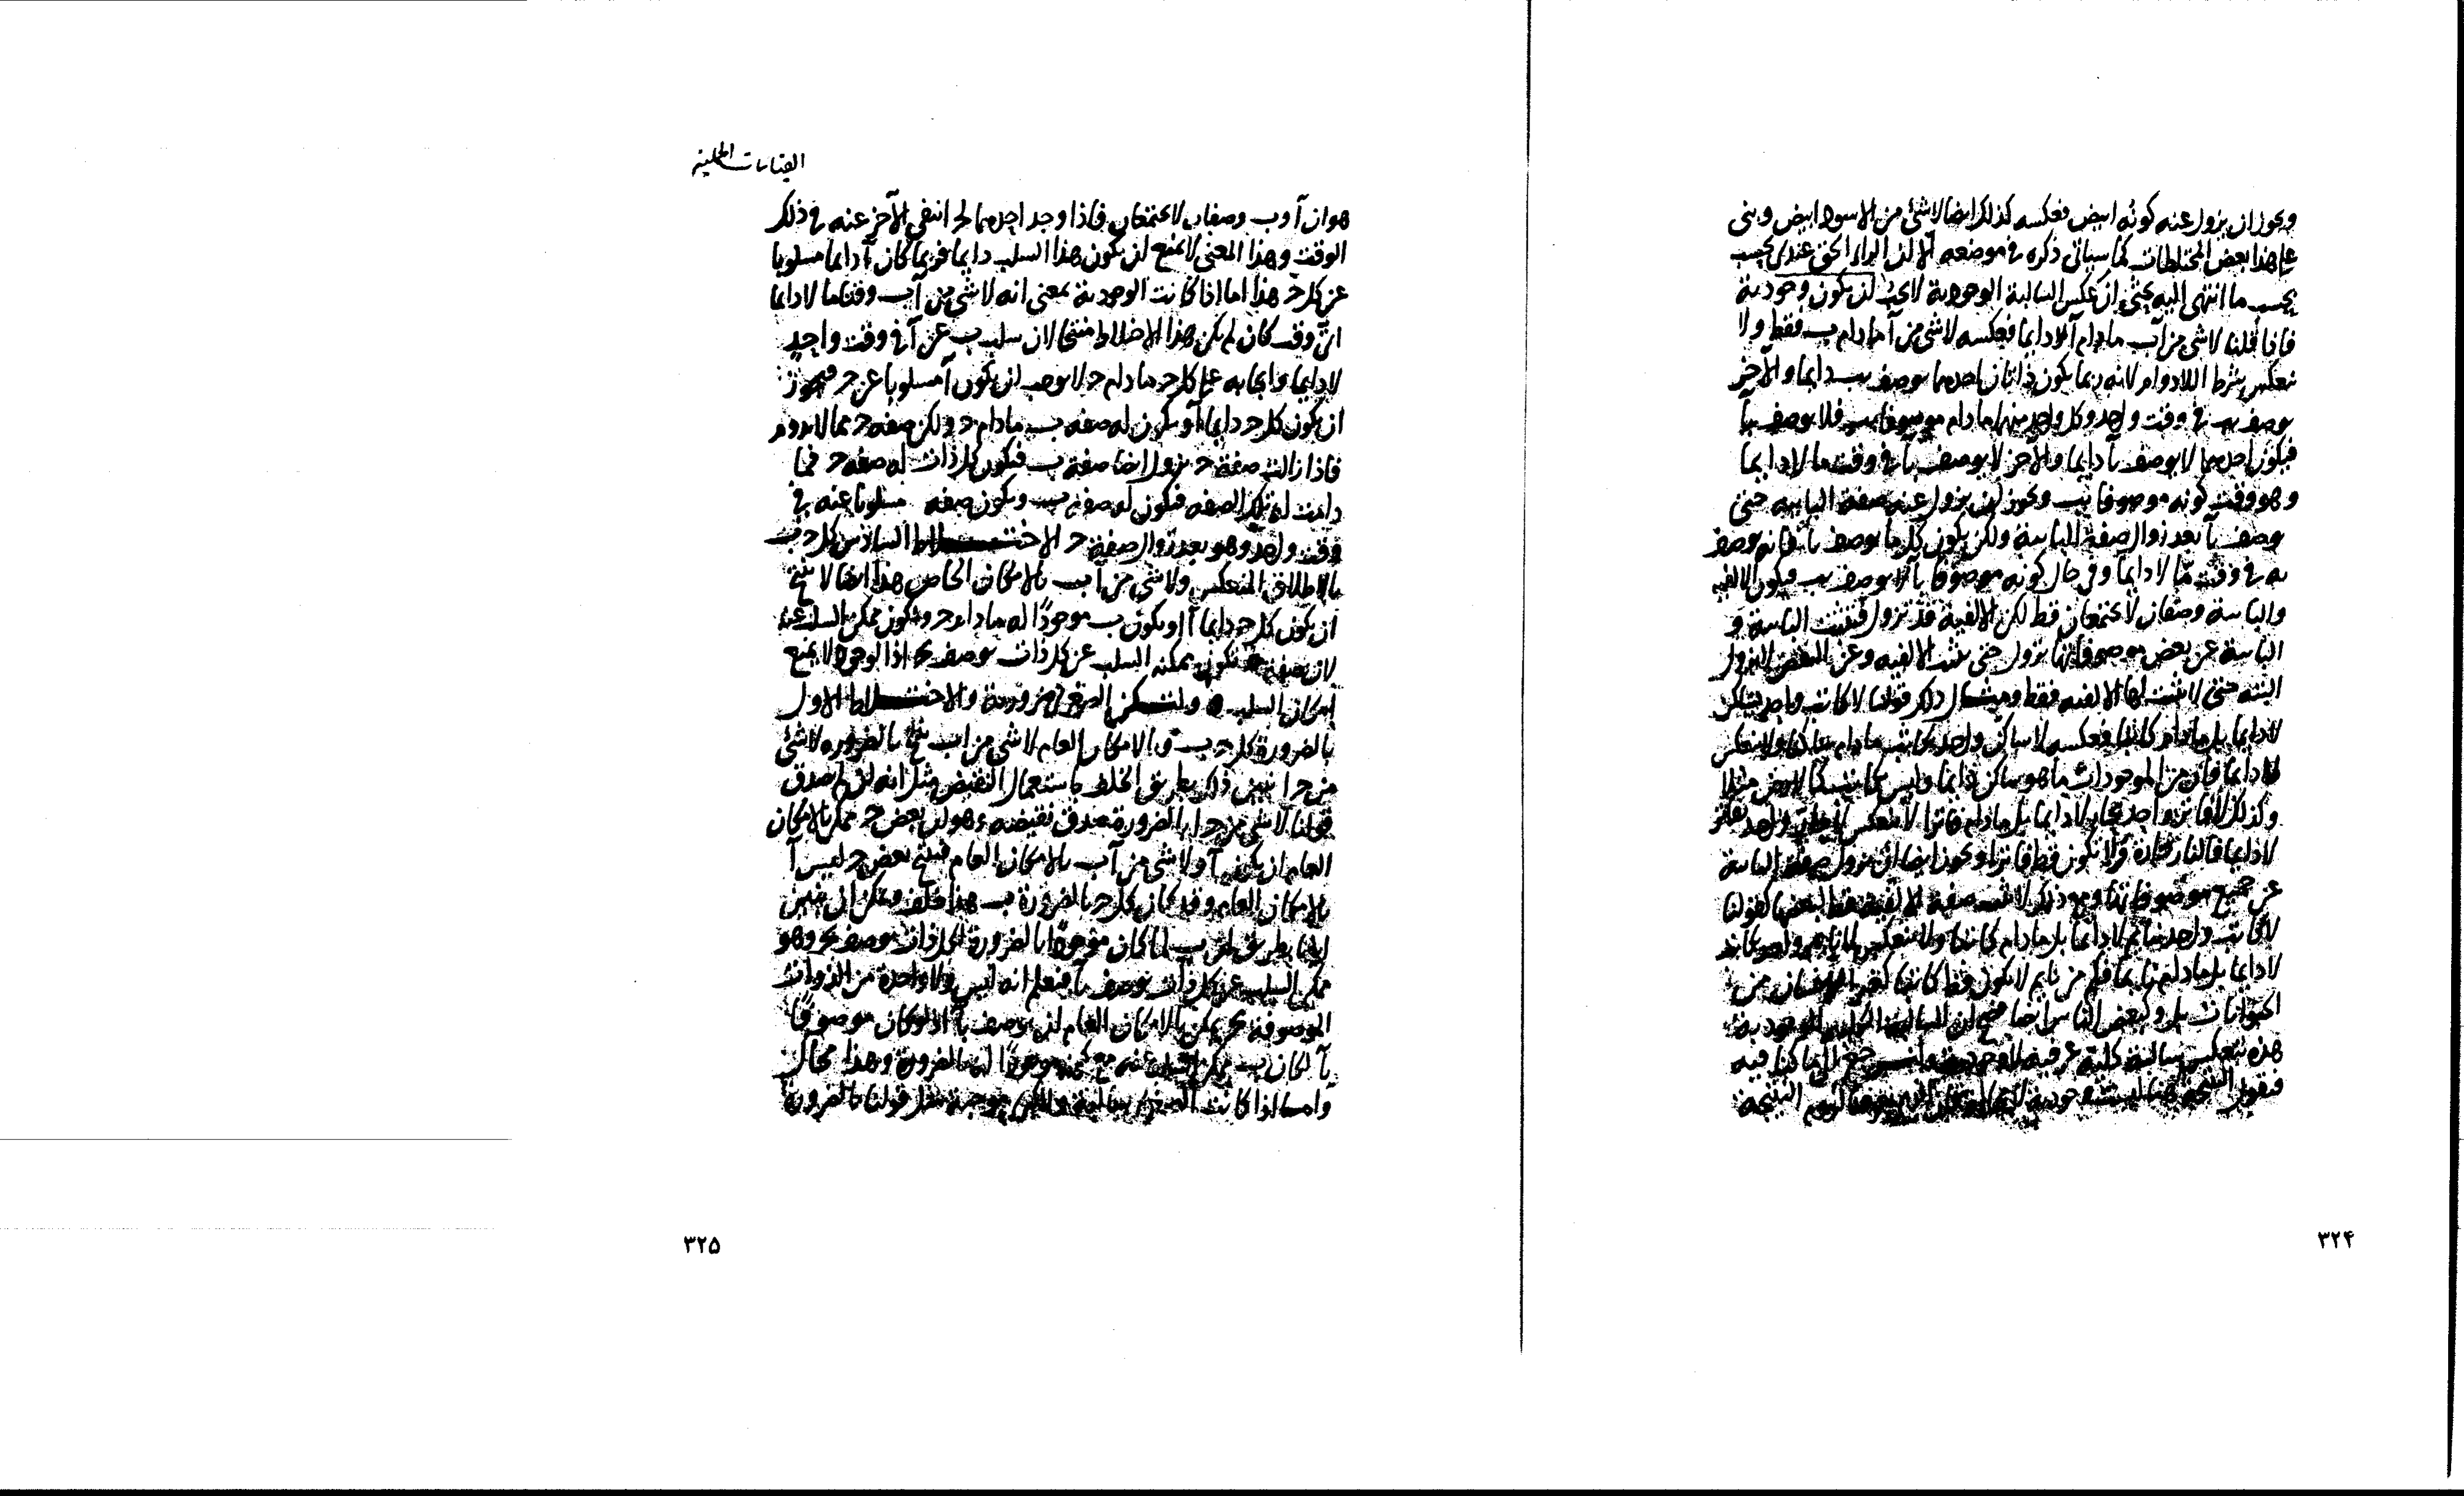 ويجوز ان يزول عنه كونه ابيض فعكسه كذلك ايضا لاشئ من الاسود ابيض وبنى
على هذا بعض المختلطات كما سياتى ذكره فى موضعه الا ان الراى الحق عندى بحسب
بحسب ما انتهى اليه بحثى ان عكس السالبة الوجودية لا يجب ان يكون وجودية
فاذا قلنا لا شى من آ ب ما دام آ لا دايما فعكسه لا شى من آ ما دام ب فقط ولا
تنعكس بشرط اللادوام لانه ربما يكون ذاتان احدهما يوصف ب دايما والآخر
يوصف به فى وقت واحد وكل واحد منهما ما دام موصوفا ب فلا يوصف بآ
فيكون احدهما لا يوصف بآ دايما والآخر لا يوصف بآ فى وقت ما لا دايما
وهو وقت كونه موصوفا ب ويجوز ان يزول عنه صفة البائية حتى
يوصف بآ بعد زوال صفة البائية ولكن يكون كل ما يوصف بآ فانه يوصف
به فى وقت ما لا دايما وفى حال كونه موصوفا بآ لا يوصف ب فيكون الالفية
والبائية وصفان لا يجتمعان قط لكن الالفية قد تزول فتثبت البائية و
البائية عن بعض موصوفاتها تزول حتى تثبت الالفية وعن البعض لا يزول
البتة حتى لا تثبت لها الالفية فقط ومثال ذلك قولنا لا كاتب واحد بساكن
لا دايما بل ما دام كاتبا فعكسه لا ساكن واحد بكاتب ما دام ساكنا ولا ينعكس
لا دايما فان من الموجودات ما هو ساكن دايما وليس بكاتب كالارض مثلا
وكذلك لا فاتر واحد بحار لا دايما بل ما دام فاترا لا ينعكس لا حار واحد بفاتر
لا دايما فالنار حارة ولا يكون قط فاترا ويجوز ايضا ان يزول صفة البائية
عن جميع موصوفاتها ومع ذلك لا تثبت صفة الالفية لبعضها كقولنا
لا كاتب واحد نايم لا دايما بل ما دام كاتبا ولا ينعكس لا نايم واحد بكاتب
لا دايما بل ما دام نايما فكم من نايم لا يكون قط كاتبا كغير الانسان من
الحيوانات بل وكبعض الناس ايضا فصح ان السالبة الكلية الوجودية
هذه تنعكس سالبة كلية عرفية لا وجودية ولنرجع الى ما كنا فيه
فنقول النتيجة ليست وجودية النتيجة
٣٢۴
القياسات الحملية
هو ان آ و ب وصفان لا يجتمعان فاذا وجد احدهما لج انتفى الآخر عنه فى ذلك
الوقت وهذا المعنى لا يمنع ان يكون هذا السلب دايما فربما كان آ دايما مسلوبا
عن كل ج هذا اما اذا كانت الوجودية بمعنى انه لا شى من آ ب وقتا ما لا دايما
اى وقت كان لم يكن هذا الاختلاط منتجا لان سلب ب عن آ فى وقت واحد
لا دايما وايجابه على كل ج ما دام ج لا يوجب ان يكون آ مسلوبا عن ج فيجوز
ان يكون كل ج دايما آ ويكون له صفه ب ما دام ج ولكن صفه ج مما لا يدوم
فاذا زالت صفة ج يزول ايضا صفة ب فيكون كل ذات له صفة ج فما
دامت له تلك الصفه فيكون له صفة ب ويكون صفه مسلوبا عنه فى
وقت واحد وهو بعد زوال صفة ج الاختلاط السادس كل ج ب
بالاطلاق المنعكس ولا شى من آ ب بالامكان الخاص هذا ايضا لا ينتج
ان يكون كل ج دايما آ او يكون ب موجودًا له ما دام ج ويكون ممكن السلب عنه
لان صفة ج يكون ممكنه السلب عن كل ذات يوصف بج اذا الوجود لا يمنع
امكان السلب ولتكن الصغرى ضرورية والاختلاط الاول
بالضرورة كل ج ب و بالامكان العام لا شى من ا ب ينتج بالضروره لا شئ
من ج ا يتبين ذلك بطريق الخلف باستعمال النقيض مثل انه ان لم يصدق
قولنا لا شى من ج ا بالضرورة صدق نقيضه وهو ان بعض ج ممكن بالامكان
العام ان يكون آ ولا شى من آ ب بالامكان العام فينتج بعض ج ليس آ
بالامكان العام وقد كان كل ج بالضرورة ب هذا خلف ويمكن ان يتبين
ايضا بطريق ان ب لما كان موجودًا بالضرورة لكل ذات يوصف بج وهو
ممكن السلب عن كل ذات يوصف بآ فيعلم انه ليس ولا واحدة من الذوات
الموصوفة بج يمكن بالامكان العام ان يوصف بآ اذ لو كان موصوفًا
بآ لكان ب ممكن السلب عنه مع كونه موجودًا له بالضرورة وهذا محال
واما اذا كانت الصغرى سالبة والكبرى موجبة مثل قولنا بالضرورة
٣٢۵